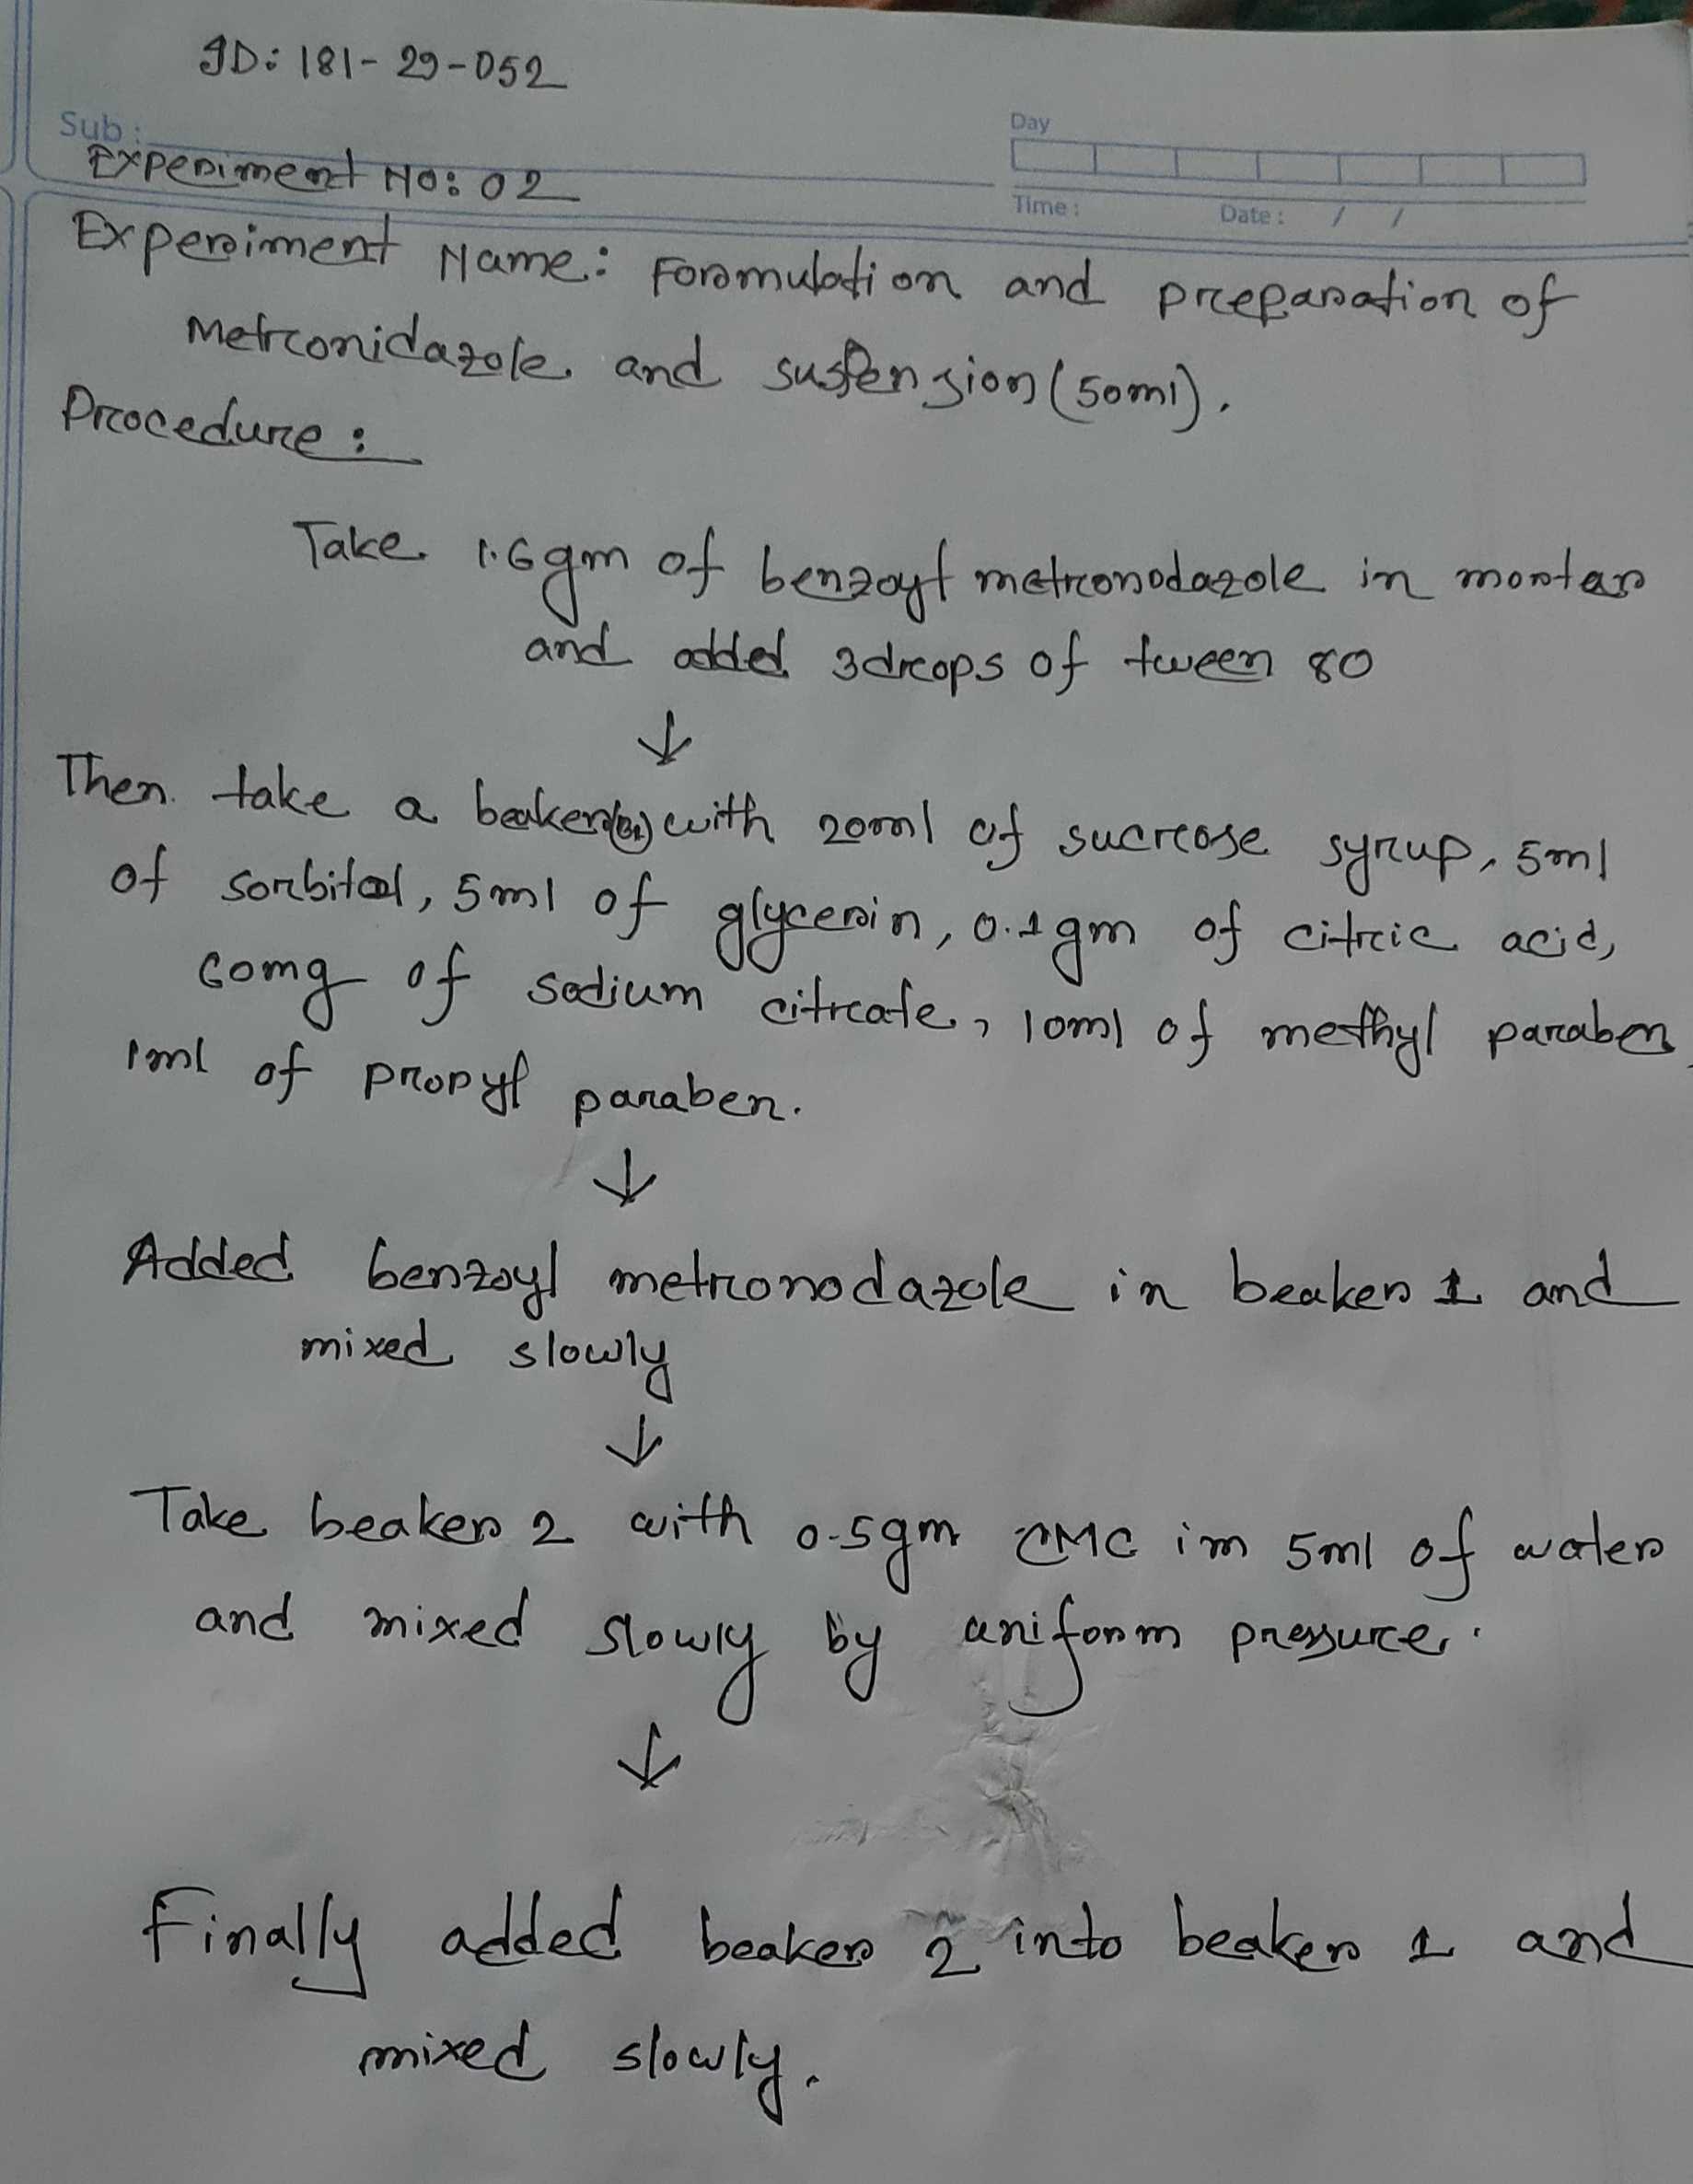 ID: 181-29-052
Sub:
Day
Experiment No: 02
Time:
Date: / /
Experiment Name: Formulation and preparation of
Metronidazole and suspension (50ml).
Procedure:
Take 1.6gm of benzoyl metronodazole in mortar
and added 3drops of tween 80
↓
Then take a beaker(B1) with 20ml of sucrose syrup, 5ml
of sorbitol, 5ml of glycerin, 0.1gm of citric acid,
60mg of sodium citrate, 10ml of methyl paraben
1ml of propyl paraben.
↓
Added benzoyl metronodazole in beaker 1 and
mixed slowly
↓
Take beaker 2 with 0.5gm CMC im 5ml of water
and mixed slowly by uniform pressure.
↓
Finally added beaker 2 into beaker 1 and
mixed slowly.